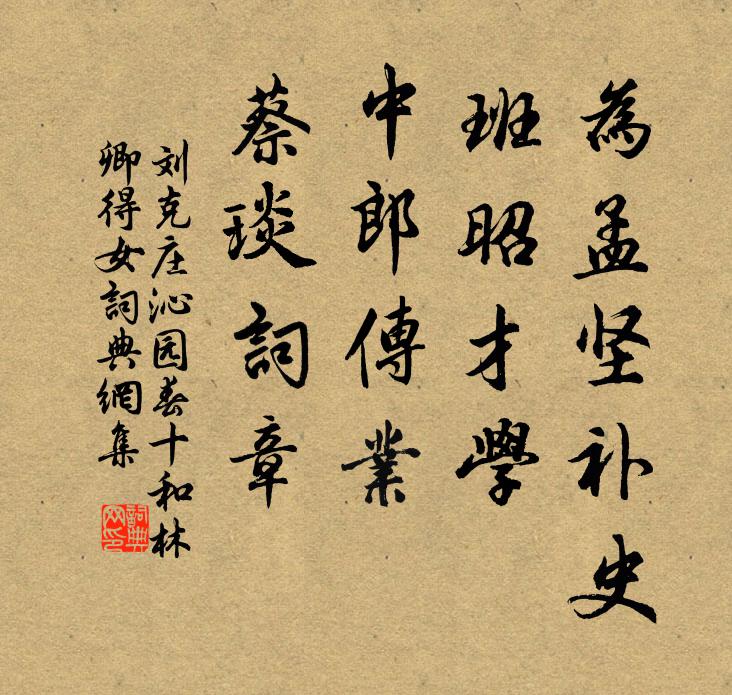 為孟坚补史
班昭才學
中郎傳業
蔡琰詞章
刘克庄沁园春十和林
卿得女詞典網集
詞典网印